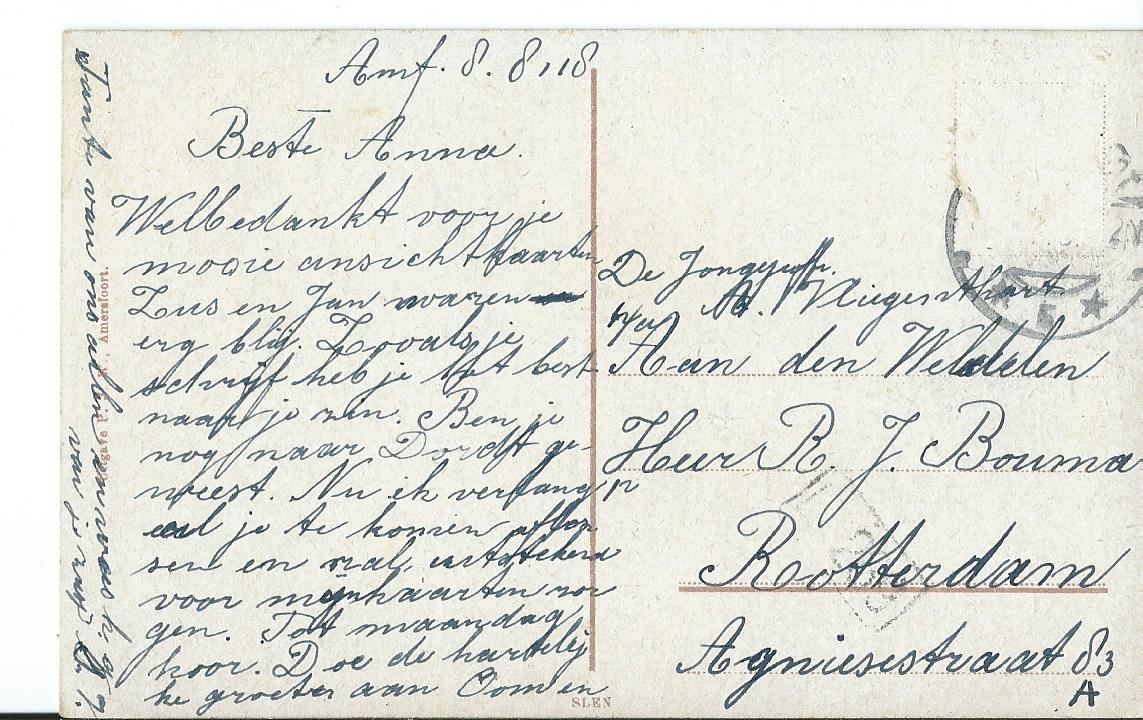 Amf. 8. 8.18
Beste Anna.
Welbedankt voor je
mooie ansichtkaarten
Zus en Jan waren
erg blij. Zooals je
schrijf heb je het best
naar je zin. Ben je
nog naar Dordt ge-
weest. Nu ik verlang
al je te komen aflos
sen en zal uitstekend
voor mijnhaarten zor
gen. Tot maandag
hoor. Doe de hartelij
ke groeten aan Oom en
Tante van ons allen en wees h. g.
van je zus
Uitgave Amersfoort.
De Jongejuffr.
A. Vliegenthart
Aan den Weledelen
Heer R. J. Bouma
Rotterdam
Agniesestraat 83
A
SLEN
5